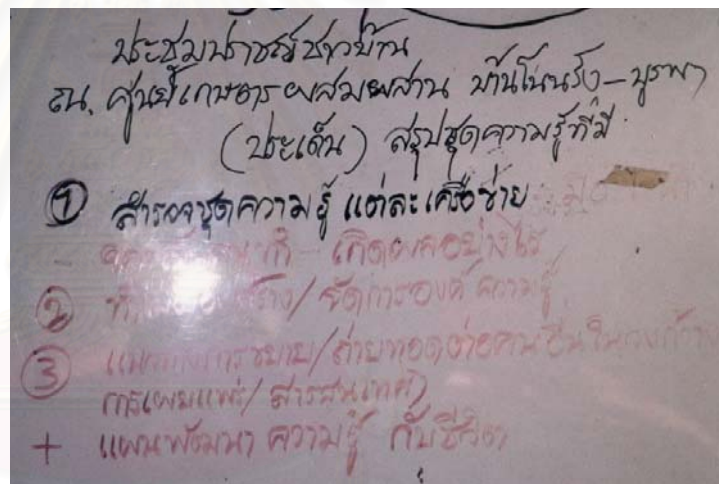 ประชุมปราชญ์ชาวบ้าน
ณ. ศูนย์เกษตรผสมผสาน บ้านโนนรัง-บูรพา
(ประเด็น) สรุปชุดความรู้ที่มี
① สำรวจชุดความรู้ แต่ละเครือข่าย
เกิดผลอย่างไร
② /จัดการองค์ความรู้
③ แนวทางการขยาย/ถ่ายทอดต่อคนอื่นในวงกว้าง
การเผยแพร่/สารสนเทศ)
+ แผนพัฒนา ความรู้ กับชีวิต